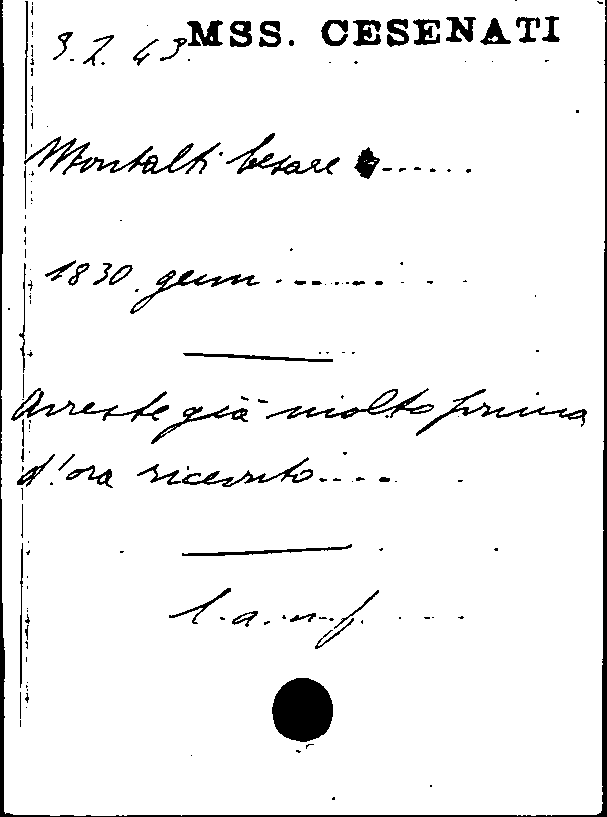 3.2.43 MSS. CESENATI
Montalti Cesare ........
1830. genn. ...........
Avreste già molto prima
d'ora ricevuto.....
l. a. m. f. ....